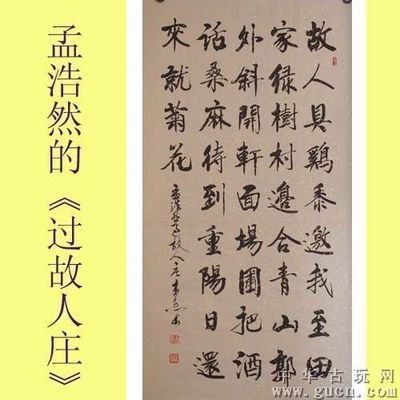 孟浩然的《过故人庄》
故人具鷄黍邀我至田
家緑樹村邊合青山郭
外斜開軒面場圃把酒
話桑麻待到重陽日還
來就菊花
孟浩然過故人庄
中华古玩网
www.gucn.com